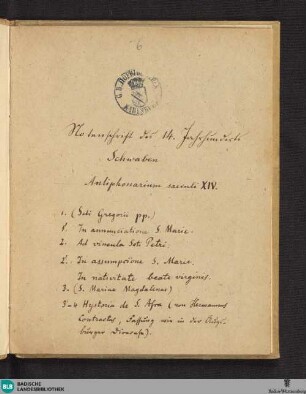 Notenschrift des 14. Jahrhunderts
Schwaben
Antiphonarium saeculi XIV.
1. (Scti Gregorii pp.)
1'. In annunciatione S. Marie.
2. Ad vincula Scti Petri.
2'. In assumpcione S. Marie.
In nativitate beate virginis.
3. (S. Mariae Magdalenae)
3-4 Hystoria de S. Afra (von Hermannus
Contractus, Fassung wie in der Augs-
burger Diözese).
BLB
BADISCHE
LANDESBIBLIOTHEK
Baden-Württemberg